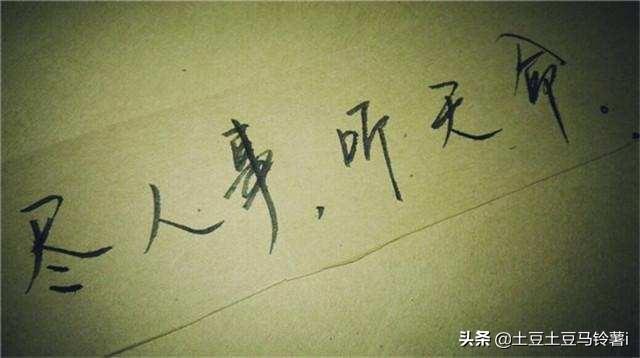 尽人事，听天命。
头条 @土豆土豆马铃薯i